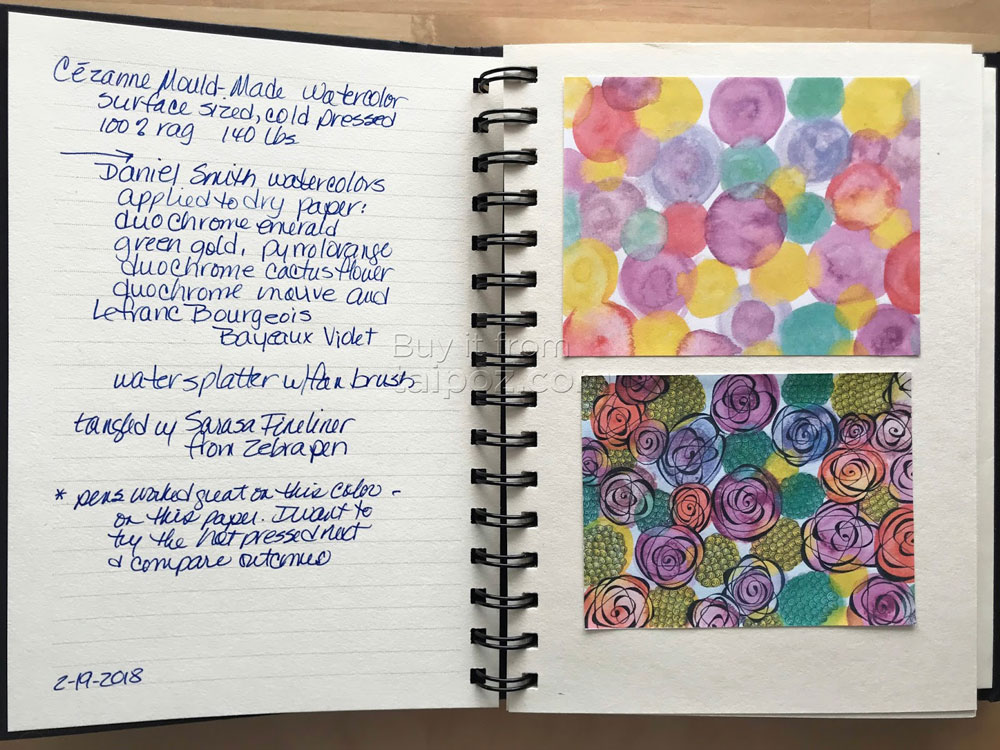 Cézanne Mould-Made Watercolor
surface sized, cold pressed
100% rag 140 lbs
Daniel Smith watercolors
applied to dry paper:
duochrome emerald
green gold, pyrrol orange
duochrome cactus flower
duochrome mauve and
Lefranc Bourgeois
Bayeaux Violet
water splatter w/fan brush
tangled w/ Sarasa Fineliner
from Zebra pen
* pens worked great on this color -
on this paper. I want to
try the hot pressed next
& compare outcomes
2-19-2018
Buy it from
taipoz.co